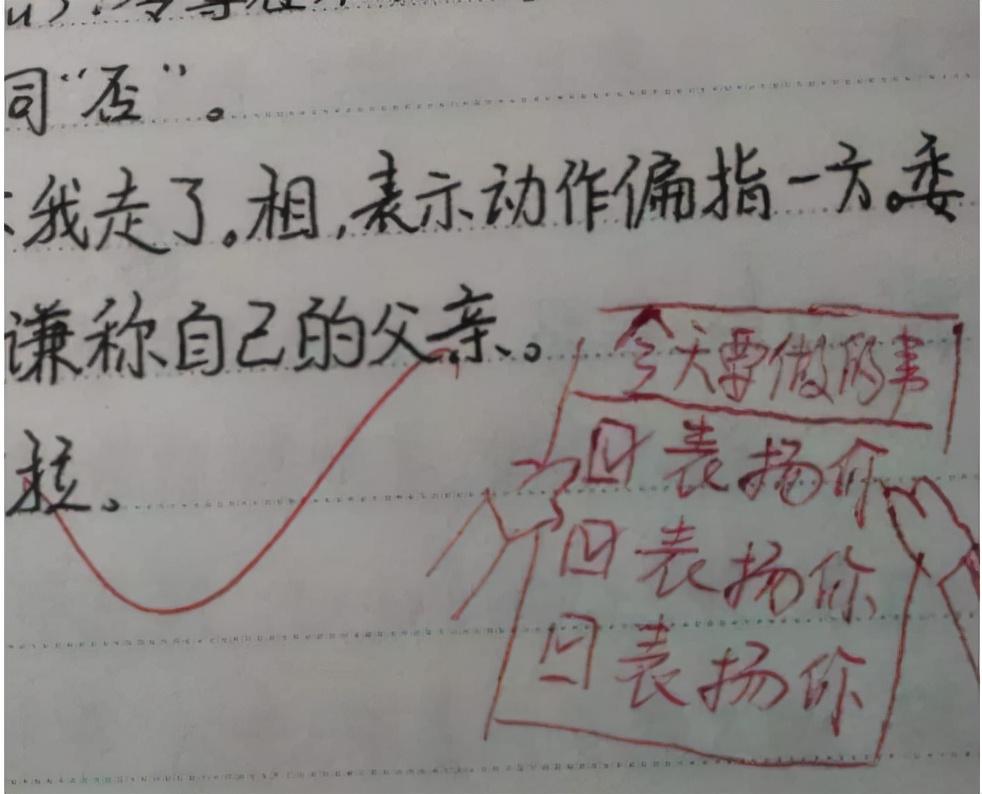 同“否”。
我走了。相，表示动作偏指一方。委
谦称自己的父亲。
拉。
今天要做的事
表扬你
表扬你
表扬你